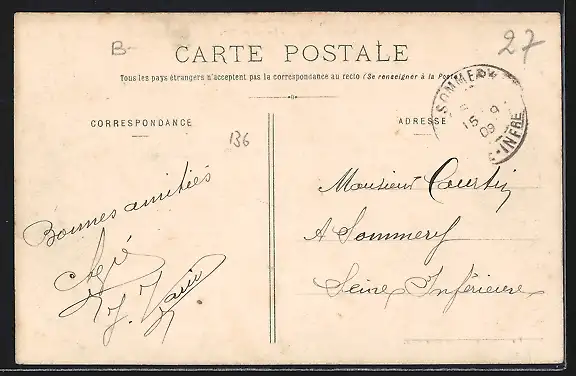 B-
27
CARTE POSTALE
Tous les pays étrangers n'acceptent pas la correspondance au recto (Se renseigner à la Poste)
CORRESPONDANCE
ADRESSE
SOMMERY
15 -9
09
-INFRE
136
Bonnes amitiés
Monsieur Courtin
A Sommery
Seine Inférieure